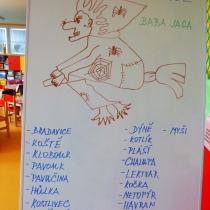 BABA JAGA
- BRADAVICE
- KOŠTĚ
- KLOBOUK
- PAVOUK
- PAVUČINA
- HŮLKA
- KOSTLIVEC
- DÝNĚ
- KOTLÍK
- PLÁŠŤ
- CHALUPA
- LEKTVAR
- KOČKA
- NETOPÝR
- HAVRAN
- MYŠI